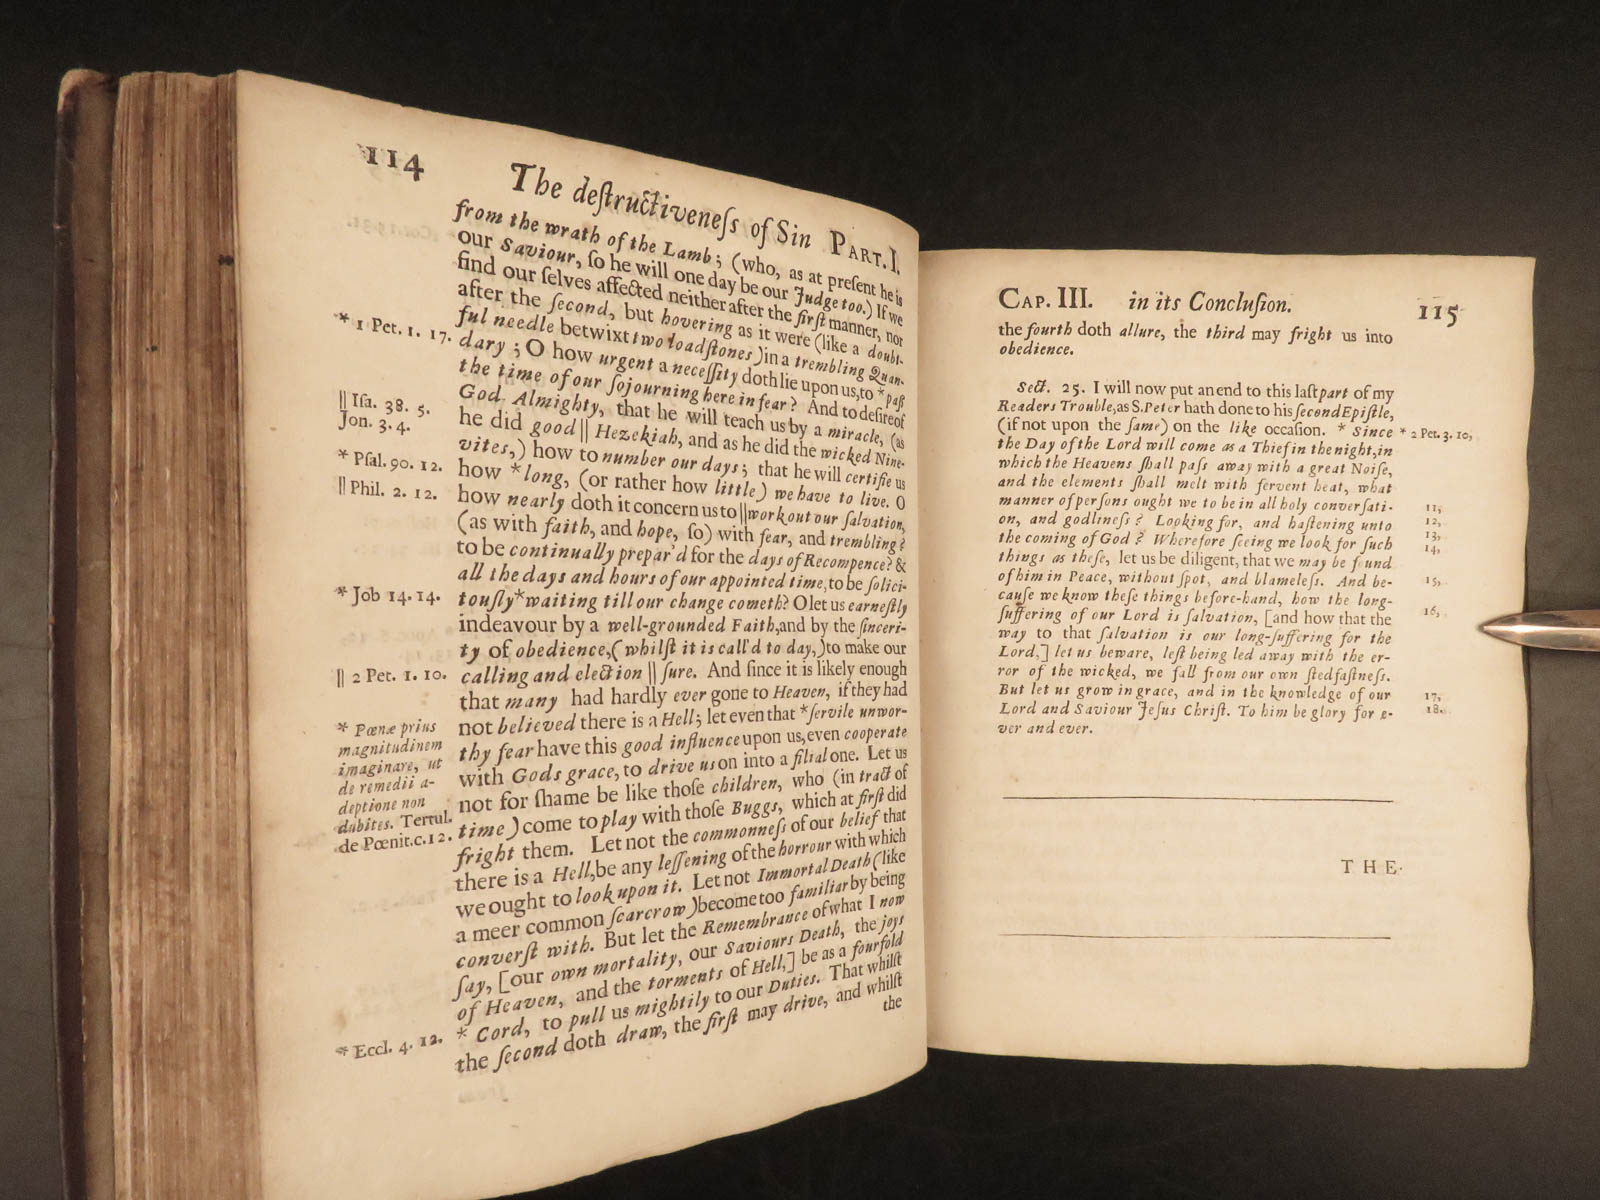 114
The deſtructiveneſs of Sin PART. I.
from the wrath of the Lamb; (who, as at preſent he is
our Saviour, ſo he will one day be our Judge too.) If we
find our ſelves affected neither after the firſt manner, nor
after the ſecond, but hovering as it were (like a doubt-
ful needle betwixt two loadſtones) in a trembling Quan-
dary; O how urgent a neceſſity doth lie upon us, to * paſs
the time of our ſojourning here in fear? And to deſire of
God Almighty, that he will teach us by a miracle, (as
he did good || Hezekiah, and as he did the wicked Nine-
vites,) how to number our days; that he will certifie us
how * long, (or rather how little) we have to live. O
how nearly doth it concern us to || work out our ſalvation,
(as with faith, and hope, ſo) with fear, and trembling?
to be continually prepar'd for the days of Recompence? &
all the days and hours of our appointed time, to be ſolici-
touſly * waiting till our change cometh? O let us earneſtly
indeavour by a well-grounded Faith, and by the ſinceri-
ty of obedience, (whilſt it is call'd to day,) to make our
calling and election || ſure. And ſince it is likely enough
that many had hardly ever gone to Heaven, if they had
not believed there is a Hell; let even that * ſervile unwor-
thy fear have this good influence upon us, even cooperate
with Gods grace, to drive us on into a filial one. Let us
not for ſhame be like thoſe children, who (in tract of
time) come to play with thoſe Buggs, which at firſt did
fright them. Let not the commonneſs of our belief that
there is a Hell, be any leſſening of the horrour with which
we ought to look upon it. Let not Immortal Death (like
a meer common ſcarcrow) become too familiar by being
converſt with. But let the Remembrance of what I now
ſay, [our own mortality, our Saviours Death, the joys
of Heaven, and the torments of Hell,] be as a fourfold
* Cord, to pull us mightily to our Duties. That whilſt
the ſecond doth draw, the firſt may drive, and whilſt
the
* 1 Pet. 1. 17.
|| Iſa. 38. 5.
Jon. 3. 4.
* Pſal. 90. 12.
|| Phil. 2. 12.
* Job 14. 14.
|| 2 Pet. 1. 10.
* Pœnæ prius
magnitudinem
imaginare, ut
de remedii a-
deptione non
dubites. Tertul.
de Pœnit. c. 12.
* Eccl. 4. 12.
CAP. III. in its Concluſion. 115
the fourth doth allure, the third may fright us into
obedience.
Sect. 25. I will now put an end to this laſt part of my
Readers Trouble, as S. Peter hath done to his ſecond Epiſtle,
(if not upon the ſame) on the like occaſion. * Since
the Day of the Lord will come as a Thief in the night, in
which the Heavens ſhall paſs away with a great Noiſe,
and the elements ſhall melt with fervent heat, what
manner of perſons ought we to be in all holy converſati-
on, and godlineſs? Looking for, and haſtening unto
the coming of God? Wherefore ſeeing we look for ſuch
things as theſe, let us be diligent, that we may be found
of him in Peace, without ſpot, and blameleſs. And be-
cauſe we know theſe things before-hand, how the long-
ſuffering of our Lord is ſalvation, [and how that the
way to that ſalvation is our long-ſuffering for the
Lord,] let us beware, leſt being led away with the er-
ror of the wicked, we fall from our own ſtedfaſtneſs.
But let us grow in grace, and in the knowledge of our
Lord and Saviour Jeſus Chriſt. To him be glory for e-
ver and ever.
* 2 Pet. 3. 10,
11,
12,
13,
14,
15,
16,
17,
18.
THE